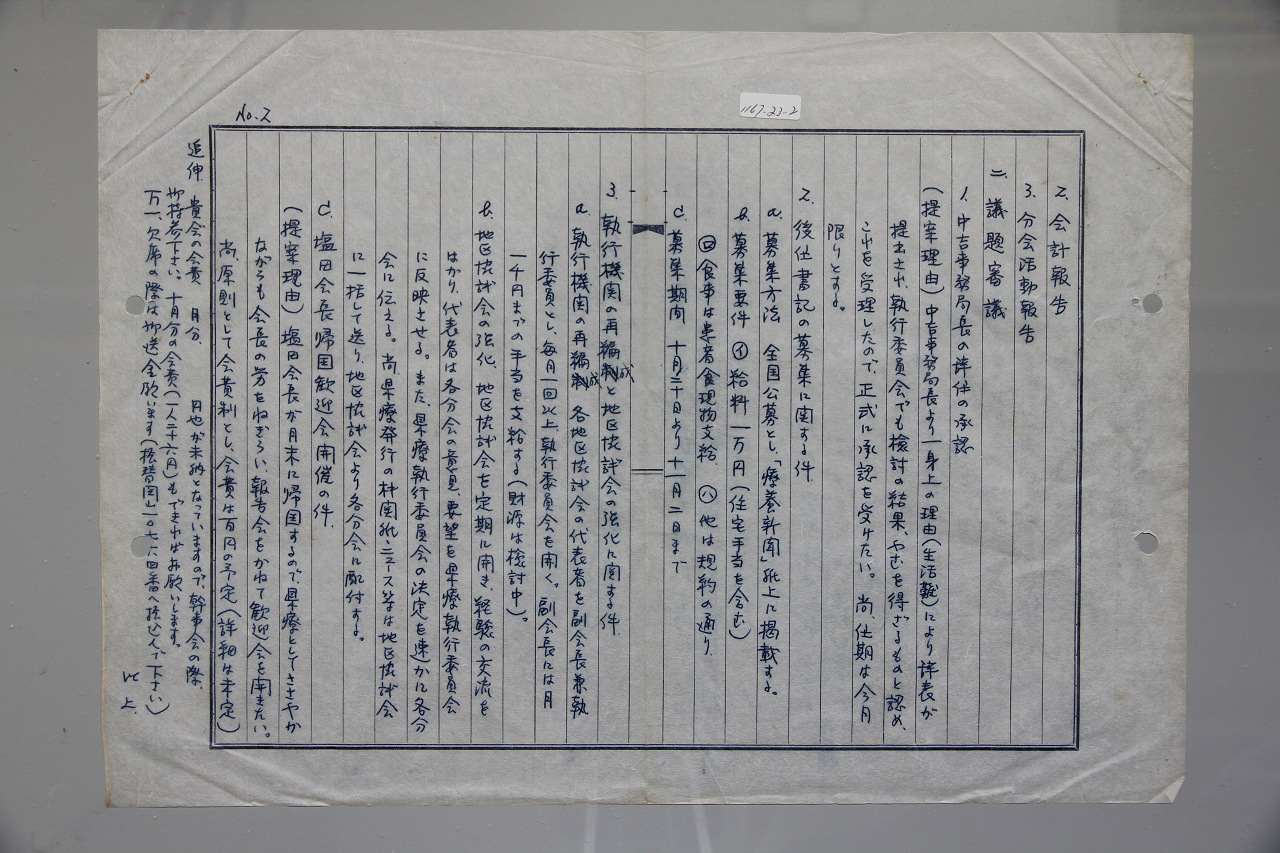 1167-23-2
No.2
2. 会計報告
3. 分会活動報告
二、議題審議
1. 中吉事務局長の辞任の承認
(提案理由)中吉事務局長より一身上の理由(生活難)により辞表が
提出され、執行委員会でも検討の結果、やむを得ざるものと認め、
これを受理したので、正式に承認を受けたい。尚、任期は今月
限りとする。
2. 後任書記の募集に関する件
a. 募集方法 全国公募とし、「療養新聞」紙上に掲載する。
b. 募集要件 ㋑給料一万円(住宅手当を含む)
㋺食事は患者食現物支給. ㋩他は規約の通り.
c. 募集期間 十月二十日より十一月二日まで
3. 執行機関の再編成と地区協議会の強化に関する件.
a. 執行機関の再編成 各地区協議会の代表者を副会長兼執
行委員とし、毎月一回以上執行委員会を開く。副会長には月
一千円までの手当を支給する(財源は検討中)。
b. 地区協議会の強化. 地区協議会を定期に開き、経験の交流を
はかり、代表者は各分会の意見、要望を県療執行委員会
に反映させる。また、県療執行委員会の決定を速かに各分
会に伝える。尚県療発行の機関紙、ニュース等は地区協議会
に一括して送り、地区協議会より各分会に配付する。
c. 塩田会長帰国歓迎会開催の件.
(提案理由)塩田会長が月末に帰国するので、県療としてささやか
ながらも会長の労をねぎらい、報告会をかねて歓迎会を開きたい。
尚、原則として会費制とし、会費は百円の予定(詳細は未定)
追伸. 貴会の会費 月分. 円也が未納となっていますので、幹事会の際、
御持参下さい。十月分の会費(一人二十六円)もできればお願いします。
万一、欠席の際は御送金願います(振替岡山一〇七六四番へ振込んで下さい)
以上.